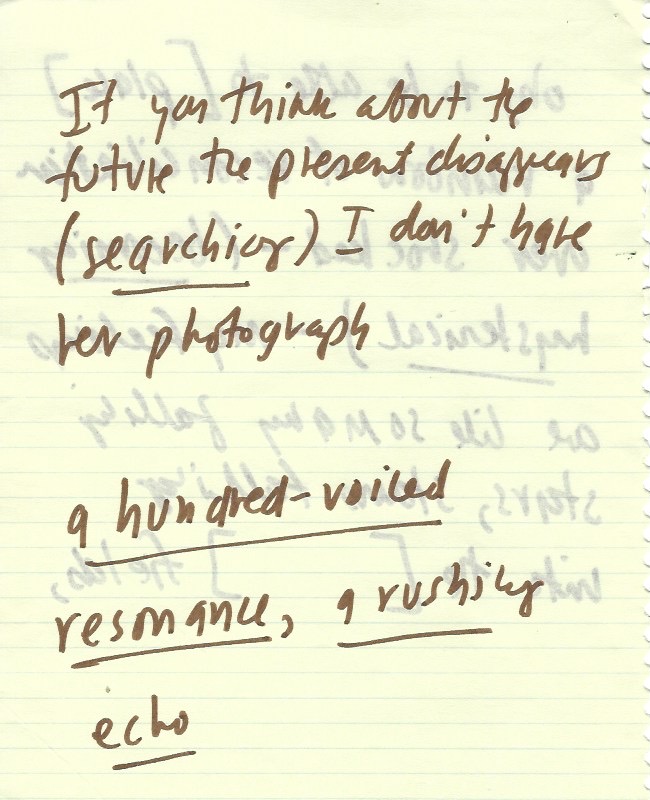 If you think about the
future the present disappears
(searching) I don't have
her photograph
a hundred-voiced
resonance, a rushing
echo